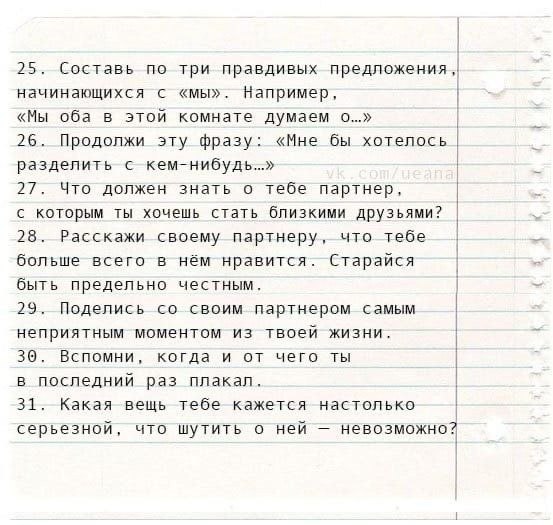 25. Составь по три правдивых предложения,
начинающихся с «мы». Например,
«Мы оба в этой комнате думаем о…»
26. Продолжи эту фразу: «Мне бы хотелось
разделить с кем-нибудь…»
vk.com/ueana
27. Что должен знать о тебе партнер,
с которым ты хочешь стать близкими друзьями?
28. Расскажи своему партнеру, что тебе
больше всего в нём нравится. Старайся
быть предельно честным.
29. Поделись со своим партнером самым
неприятным моментом из твоей жизни.
30. Вспомни, когда и от чего ты
в последний раз плакал.
31. Какая вещь тебе кажется настолько
серьезной, что шутить о ней — невозможно?